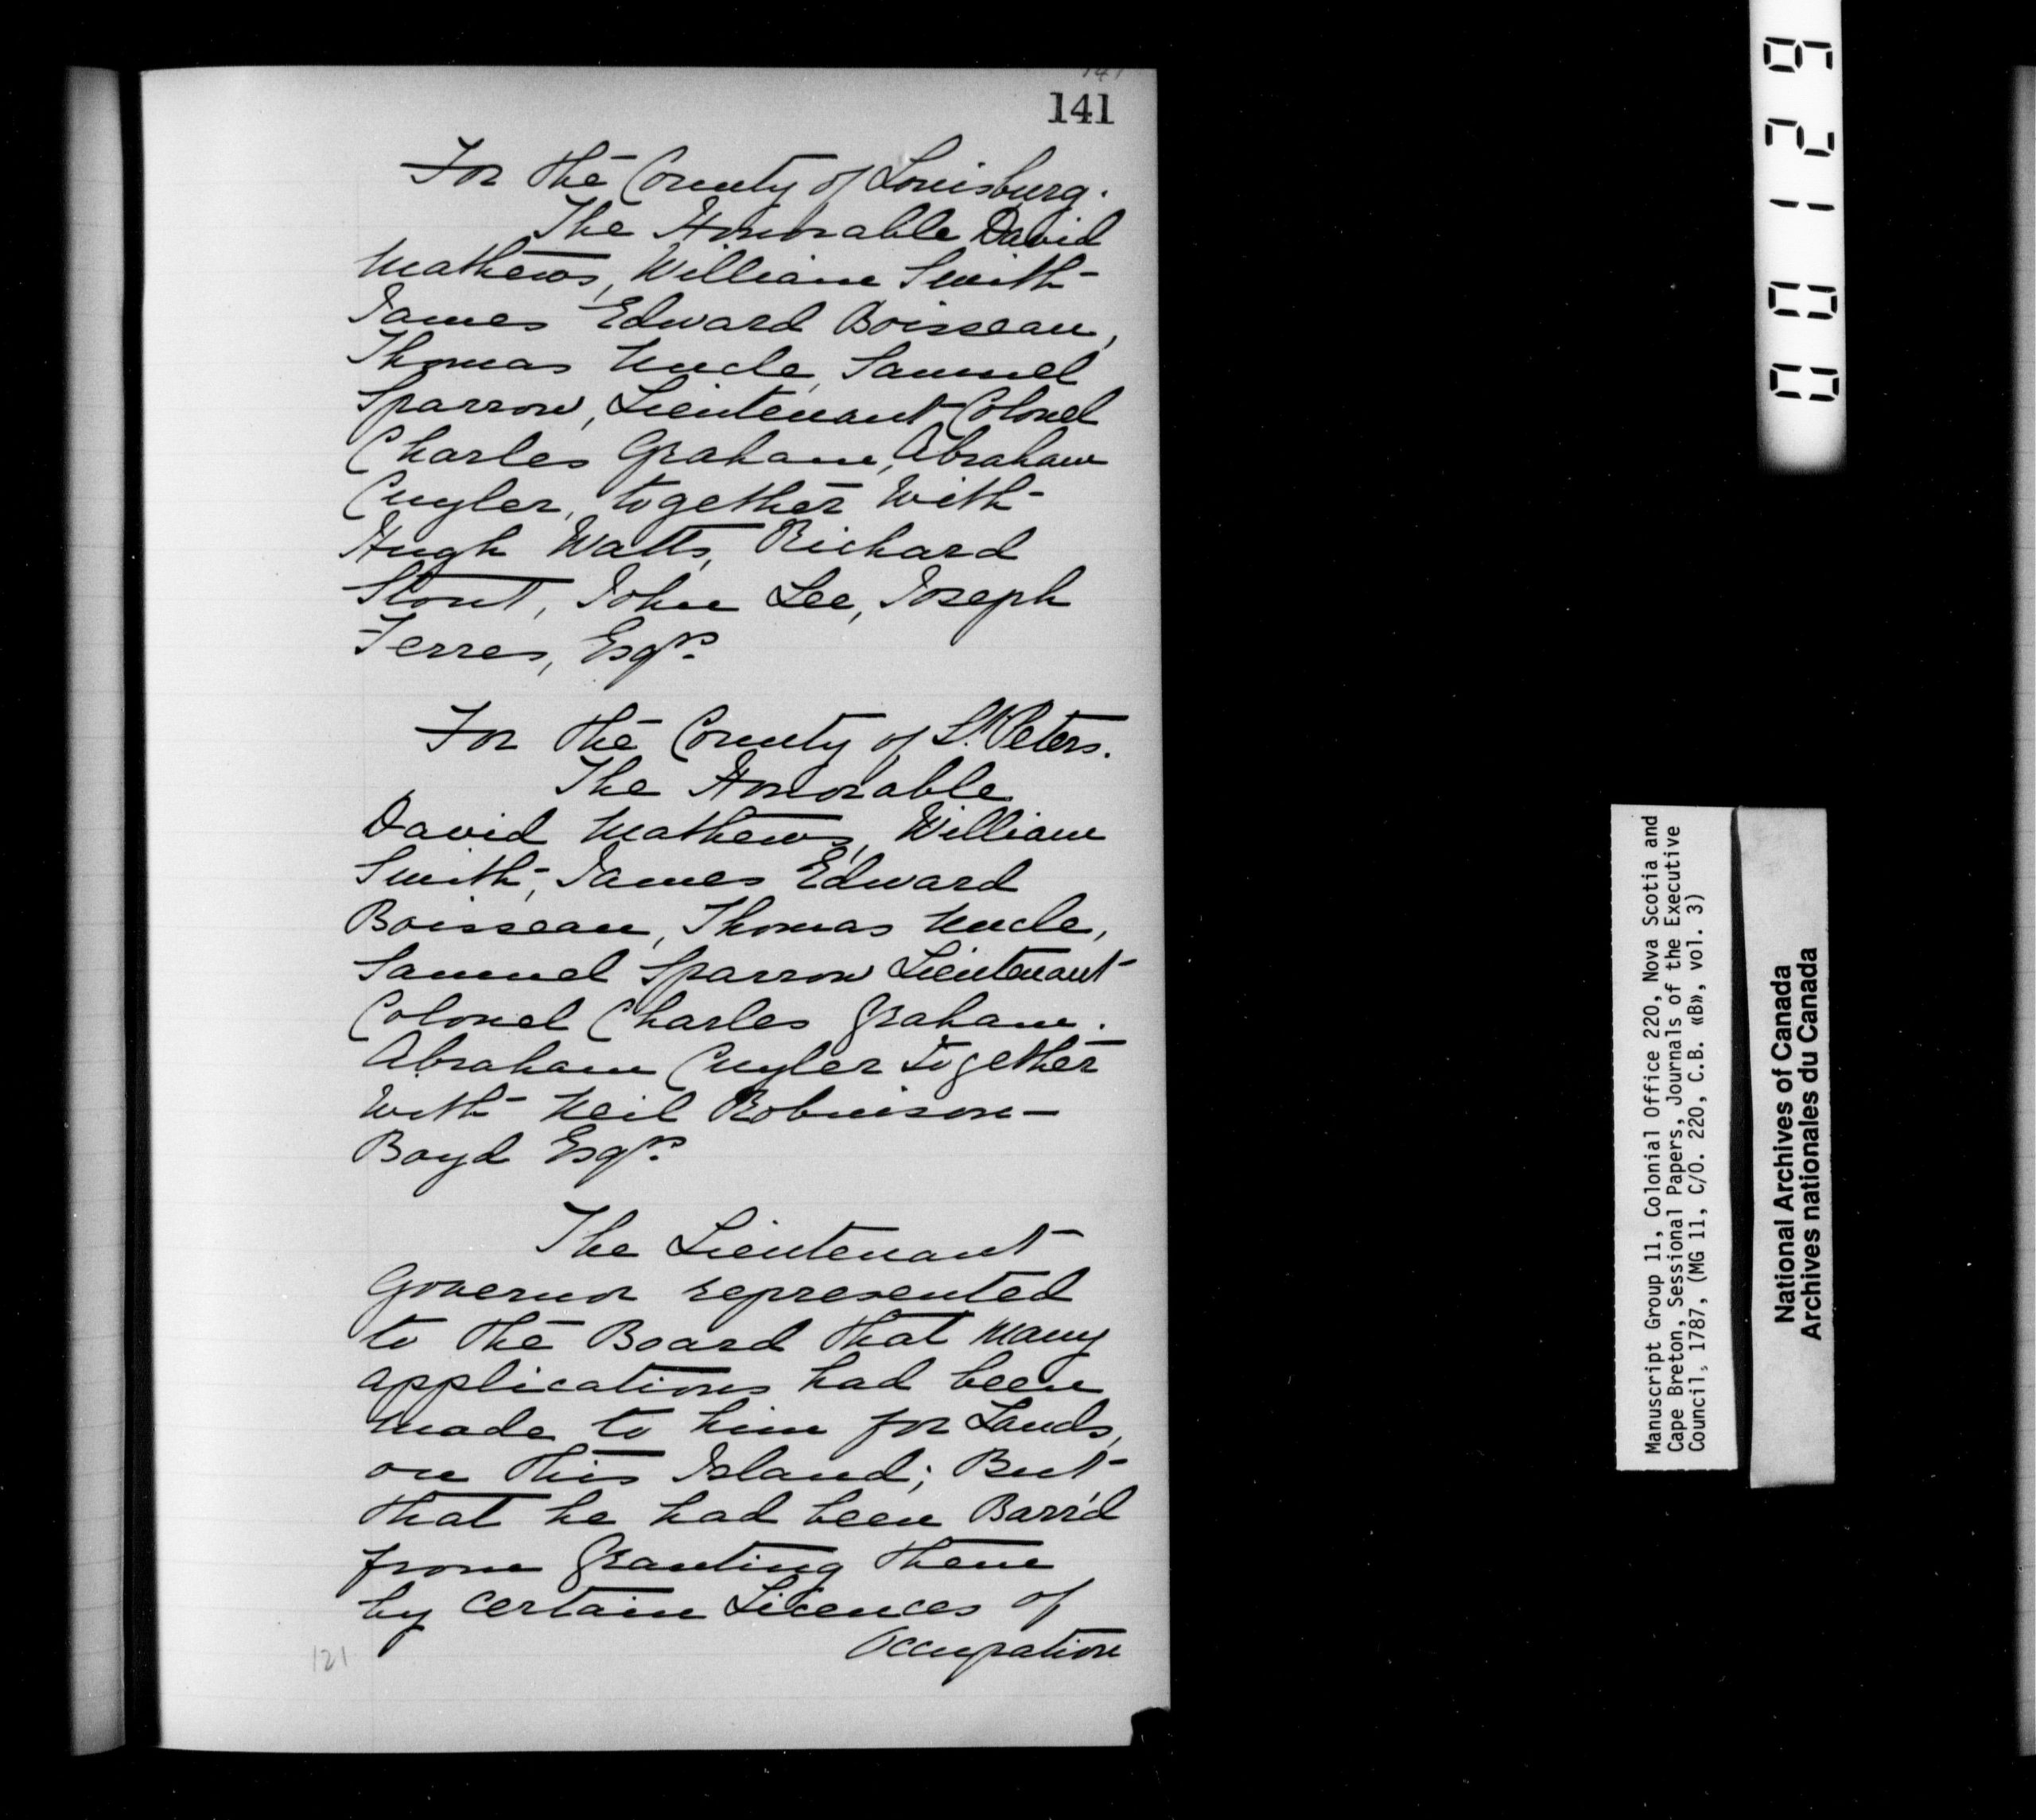 141
141
For the County of Louisburg.
The Honorable David
Mathews, William Smith
James Edward Boisseau,
Thomas Uncle, Samuel
Sparrow, Lieutenant Colonel
Charles Graham, Abraham
Cuyler, together with
Hugh Watts, Richard
Stout, John Lee, Joseph
Ferres, Esqrs.
For the County of St. Peters.
The Honorable
David Mathews, William
Smith, James Edward
Boisseau, Thomas Uncle,
Samuel Sparrow Lieutenant
Colonel Charles Graham.
Abraham Cuyler together
with Neil Robinson
Boyd Esqrs.
The Lieutenant
Governor represented
to the Board that many
applications had been
made to him for Lands,
on this Island; But
that he had been Barr'd
from granting them
by certain Licences of
Occupation
121
00129
Manuscript Group 11, Colonial Office 220, Nova Scotia and
Cape Breton, Sessional Papers, Journals of the Executive
Council, 1787, (MG 11, C/O. 220, C.B. «B», vol. 3)
National Archives of Canada
Archives nationales du Canada